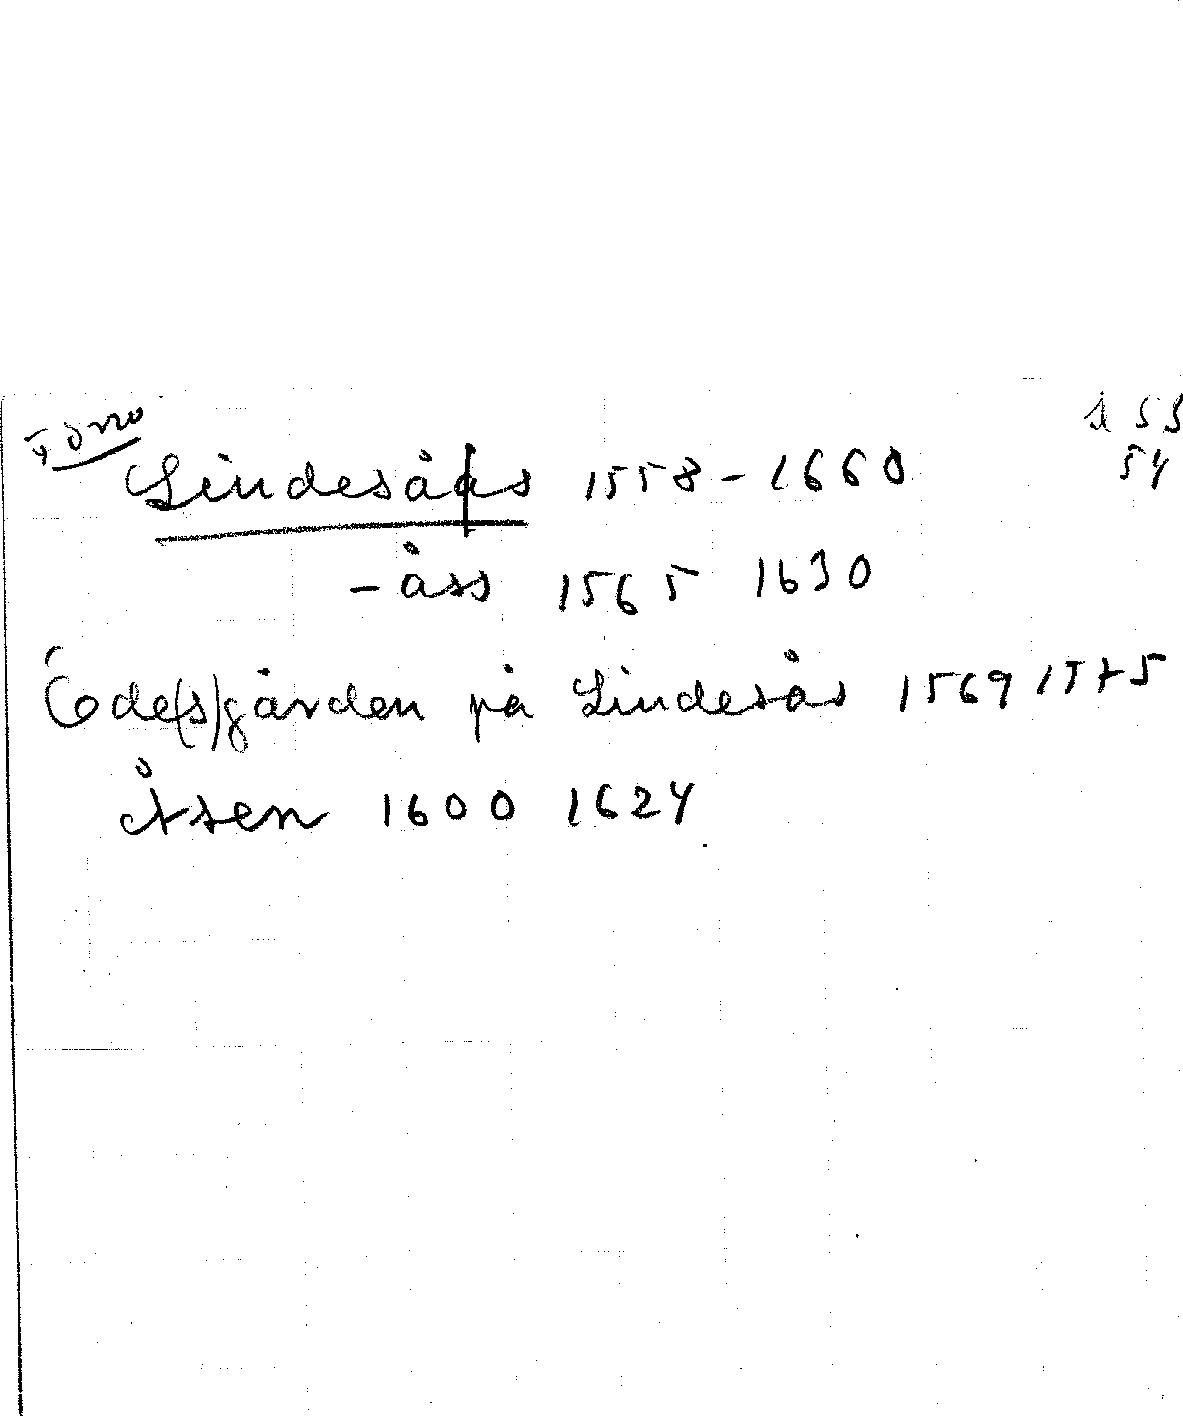 Lindesås 1558-1660
53
54
-åss 1565 1630
Öde(s)gården på Lindesås 1569 1575
Åsen 1600 1624